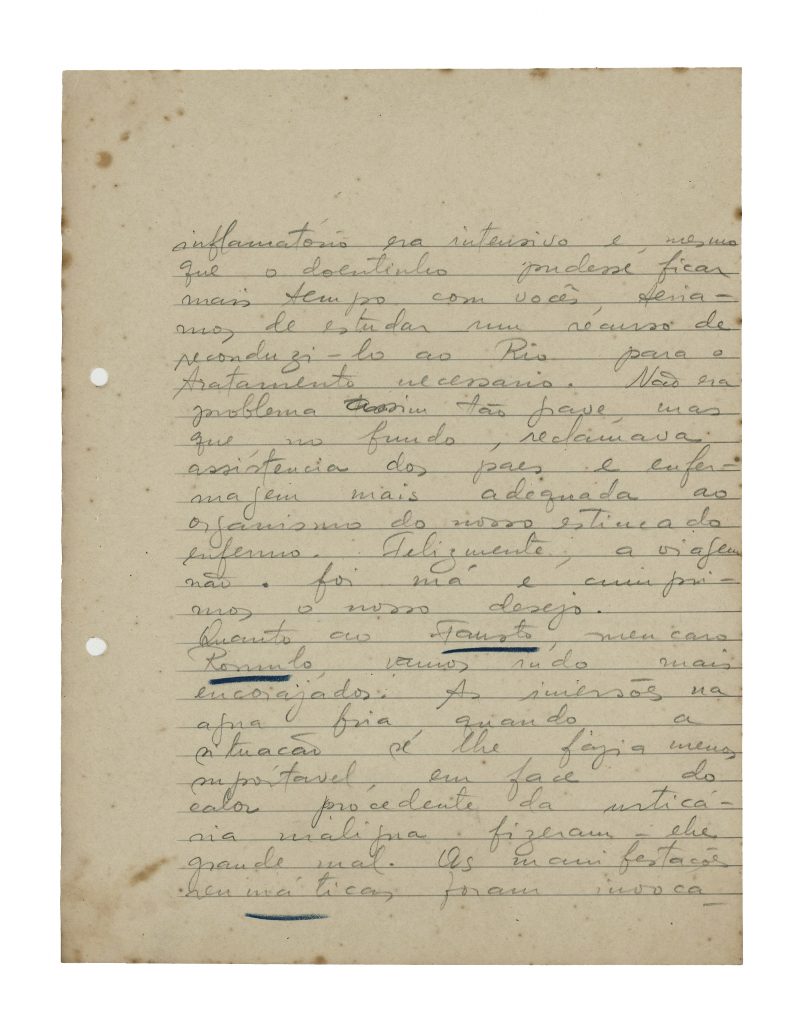 inflamatório era intensivo e, mesmo
que o doentinho pudesse ficar
mais tempo com vocês, teria-
mos de estudar um recurso de
reconduzi-lo ao Rio para o
tratamento necessario. Não era
problema tão grave, mas
que no fundo, reclamava
assistencia dos paes e enfer-
magem mais adequada ao
organismo do nosso estimado
enfermo. Felizmente, a viagem
não foi má e cumpri-
mos o nosso desejo.
Quanto ao Fausto, meu caro
Romulo, vamos indo mais
encorajados. As imersões na
agua fria, quando a
situação se lhe fazia menos
suportavel, em face do
calor procedente da urticá-
ria maligna fizeram-lhe
grande mal. As manifestações
reumáticas foram invoca-